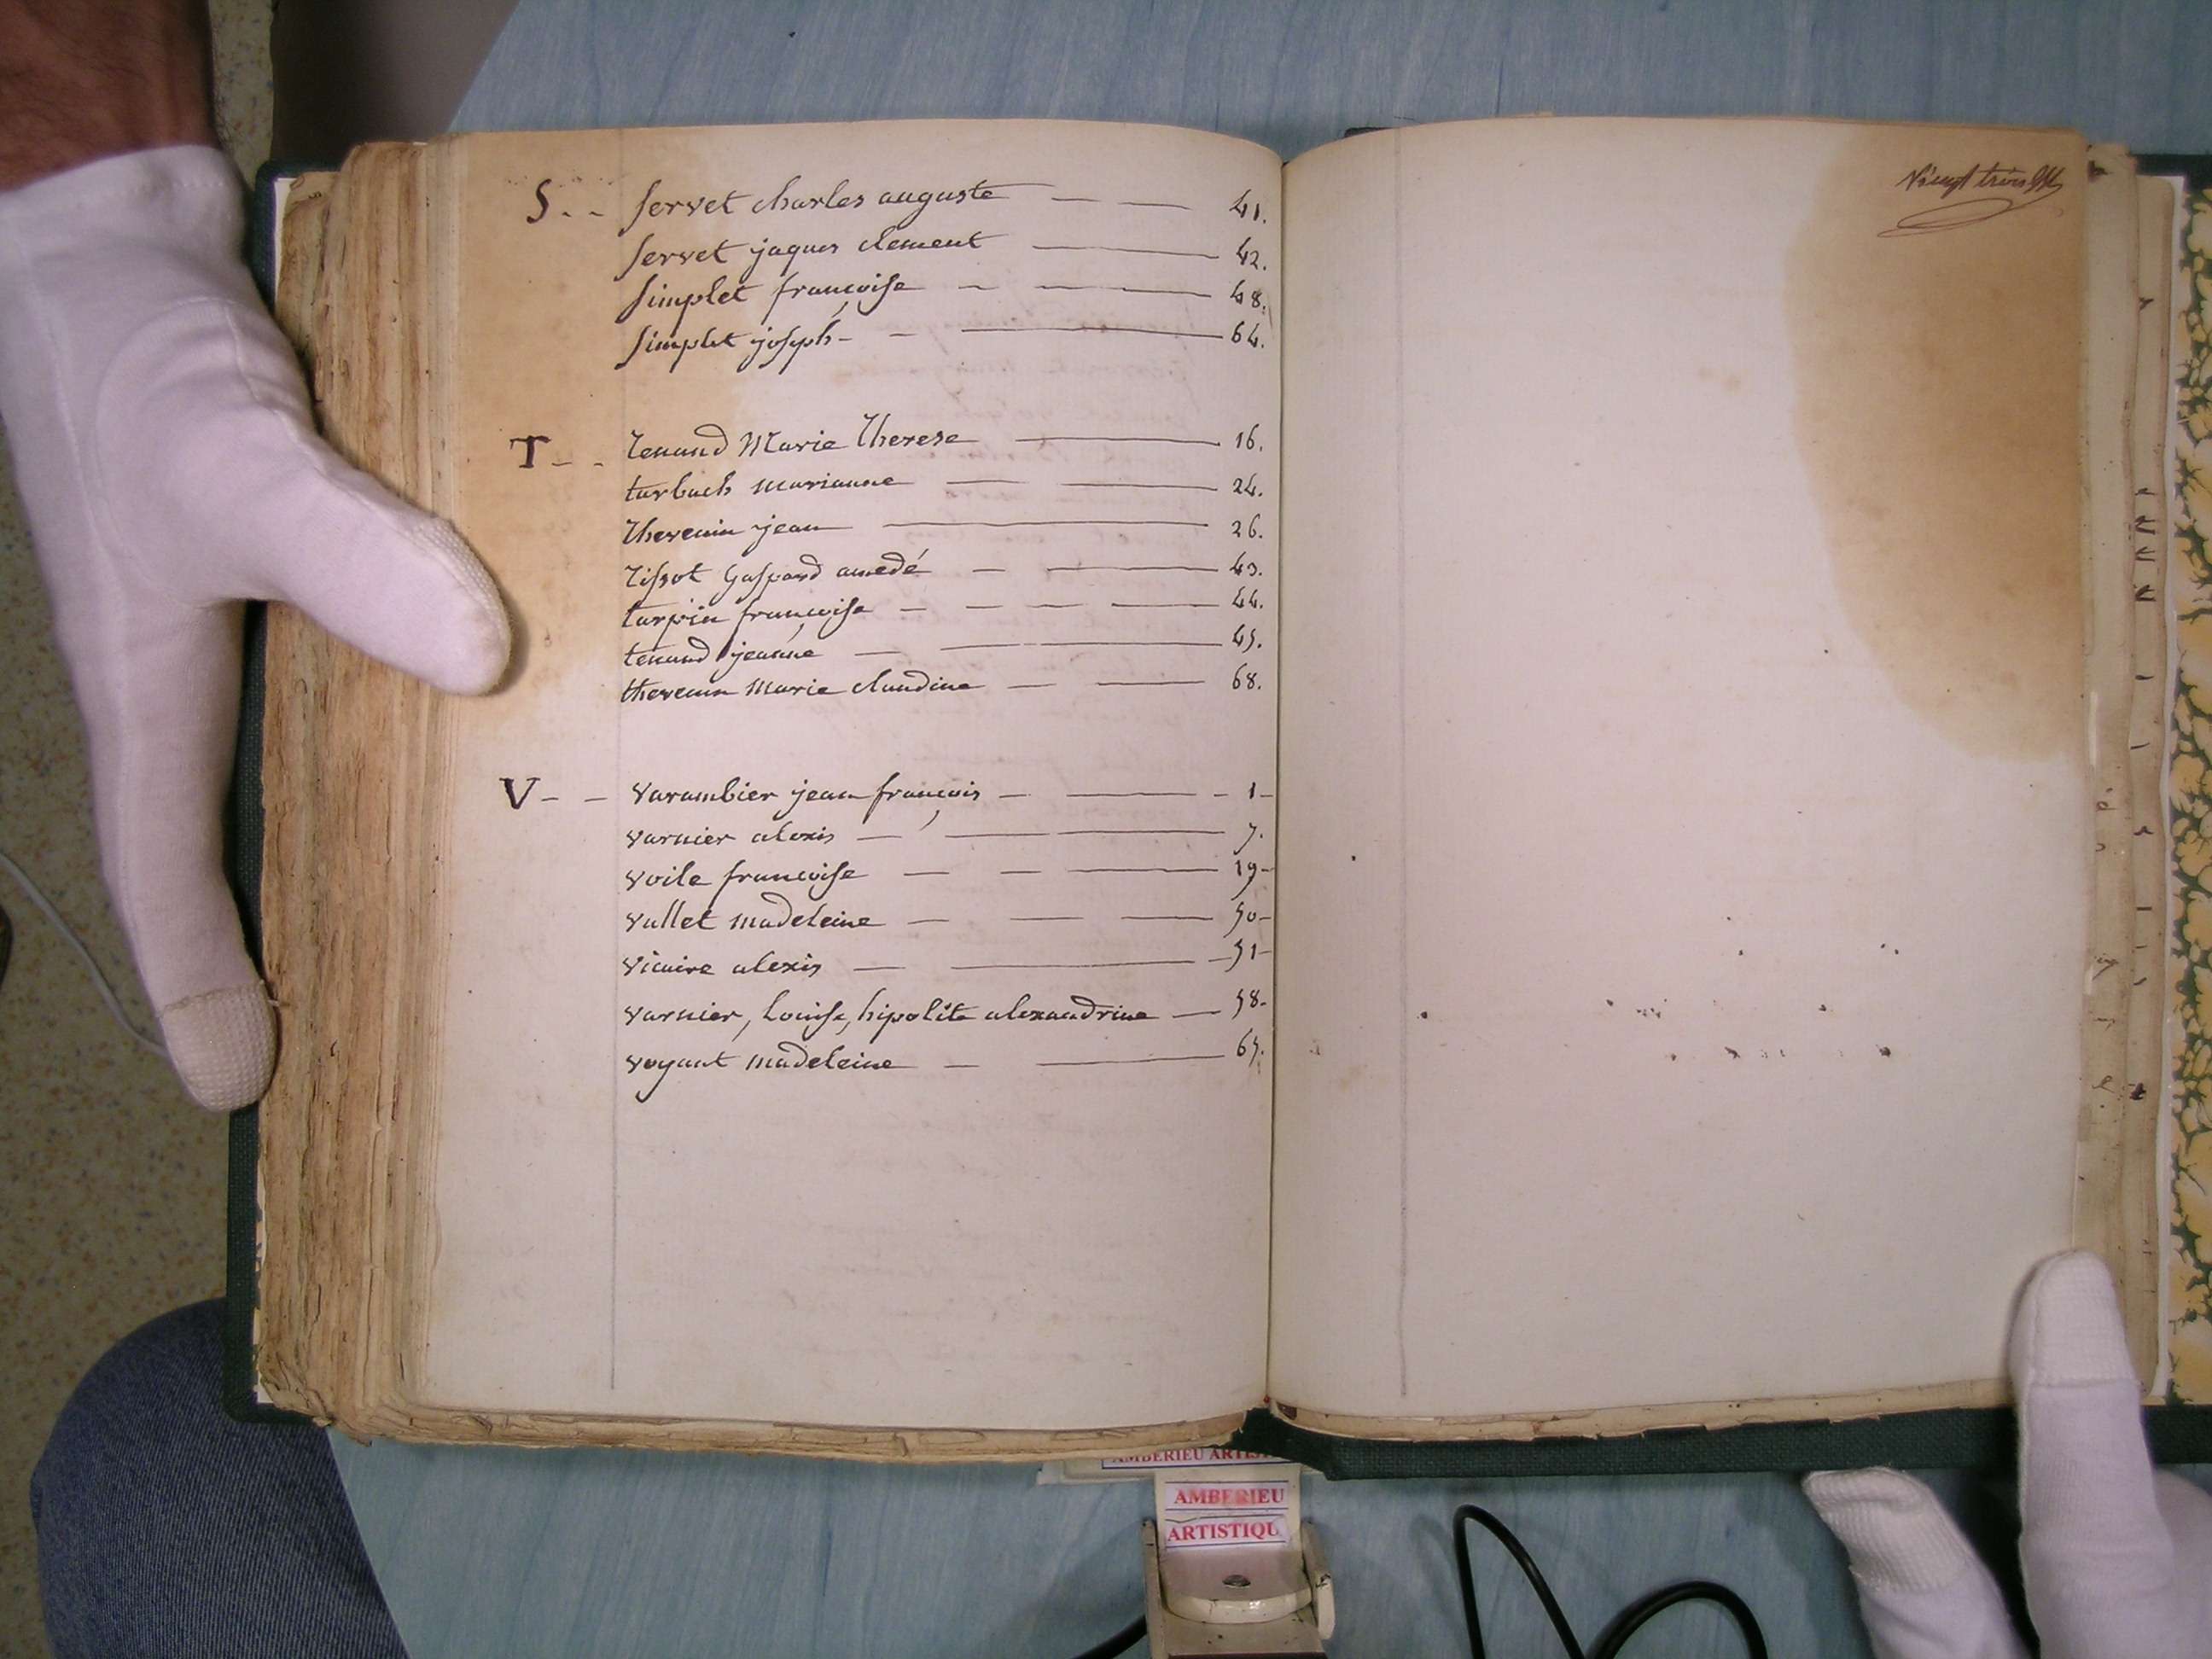 S. - Servet charles auguste — — 41.
Servet jaques clement — 42.
Simplet françoise - — — 48.
Simplet joseph - - — 64.
T - - Tenand Marie Therese — 16.
tarbach marianne — — 24.
Thevenin jean — 26.
Tissot Gaspard amedé — — 43.
turpin françoise - — — — 44.
tenand jeanne — — 45.
thevenin Marie claudine — — 68.
V - - varambier jean françois — — - 1 -
varnier alexis — — 7.
voile françoise — — — 19 -
vallet madeleine — — — 50 -
vicaire alexis — — 51 -
varnier, Louise, hipolite alexandrine — 58 -
voyant madeleine — — 65.
Vingt trois
AMBERIEU ARTIS
AMBERIEU
ARTISTIQU